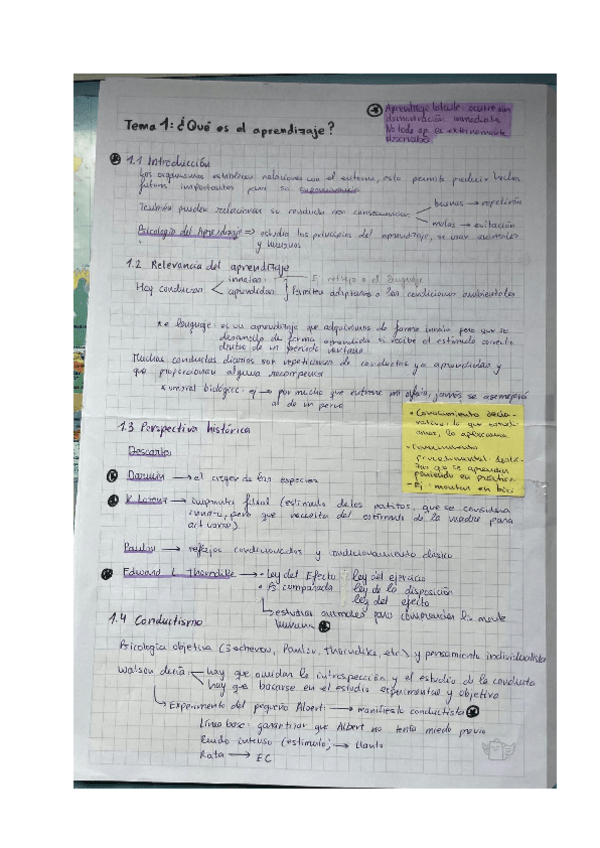 Tema 1: ¿Qué es el aprendizaje?
Aprendizaje latente: ocurre sin
demostración inmediata
No todo ap. es externamente
1.1 Introducción
Los organismos establecen relaciones con el entorno, esto permite predecir hechos
futuros importantes para su supervivencia
También pueden relacionar su conducta con consecuencias
buenas → repetición
malas → evitación
Psicología del Aprendizaje → estudia los principios del aprendizaje, se usan animales
y humanos
1.2 Relevancia del aprendizaje
Hay conductas
innatas
aprendidas
Ej. reflejo o el lenguaje
Permiten adaptarse a las condiciones ambientales
el lenguaje: es un aprendizaje que adquirimos de forma innata pero que se
desarrolla de forma aprendida si recibe el estímulo correcto
dentro de un período ventana
Muchas conductas diarias son repeticiones de conductas ya aprendidas y
que proporcionan alguna recompensa
umbral biológico: ej → por mucho que entrene mi olfato, jamás se asemejará
al de un perro
• Conocimiento decla-
rativo: lo que
• Conocimiento
procedimental:
que se aprenden
poniendo en práctica
- Ej: montar en bici
1.3 Perspectiva histórica
Descartes
Darwin → el origen de las especies
K. Lorenz → impronta filial (estímulo de los patitos, que se considera
innato, pero que necesita del estímulo de la madre para
activarse)
Paulov → reflejos condicionados y condicionamiento clásico
Edward L. Thorndike → • Ley del Efecto
• Ps comparada
ley del ejercicio
ley de la disposición
ley del efecto
estudiar animales para comprender la mente
humana
1.4 Conductismo
Psicología objetiva (Sechenov, Paulov, Thorndike, etc) y pensamiento individualista
Watson decía:
hay que olvidar la introspección y el estudio de la conducta
hay que basarse en el estudio experimental y objetivo
Experimento del pequeño Albert: → manifiesto conductista
Línea base: garantizar que Albert no tenía miedo previo
Ruido intenso (estímulo) → llanto
Rata → EC